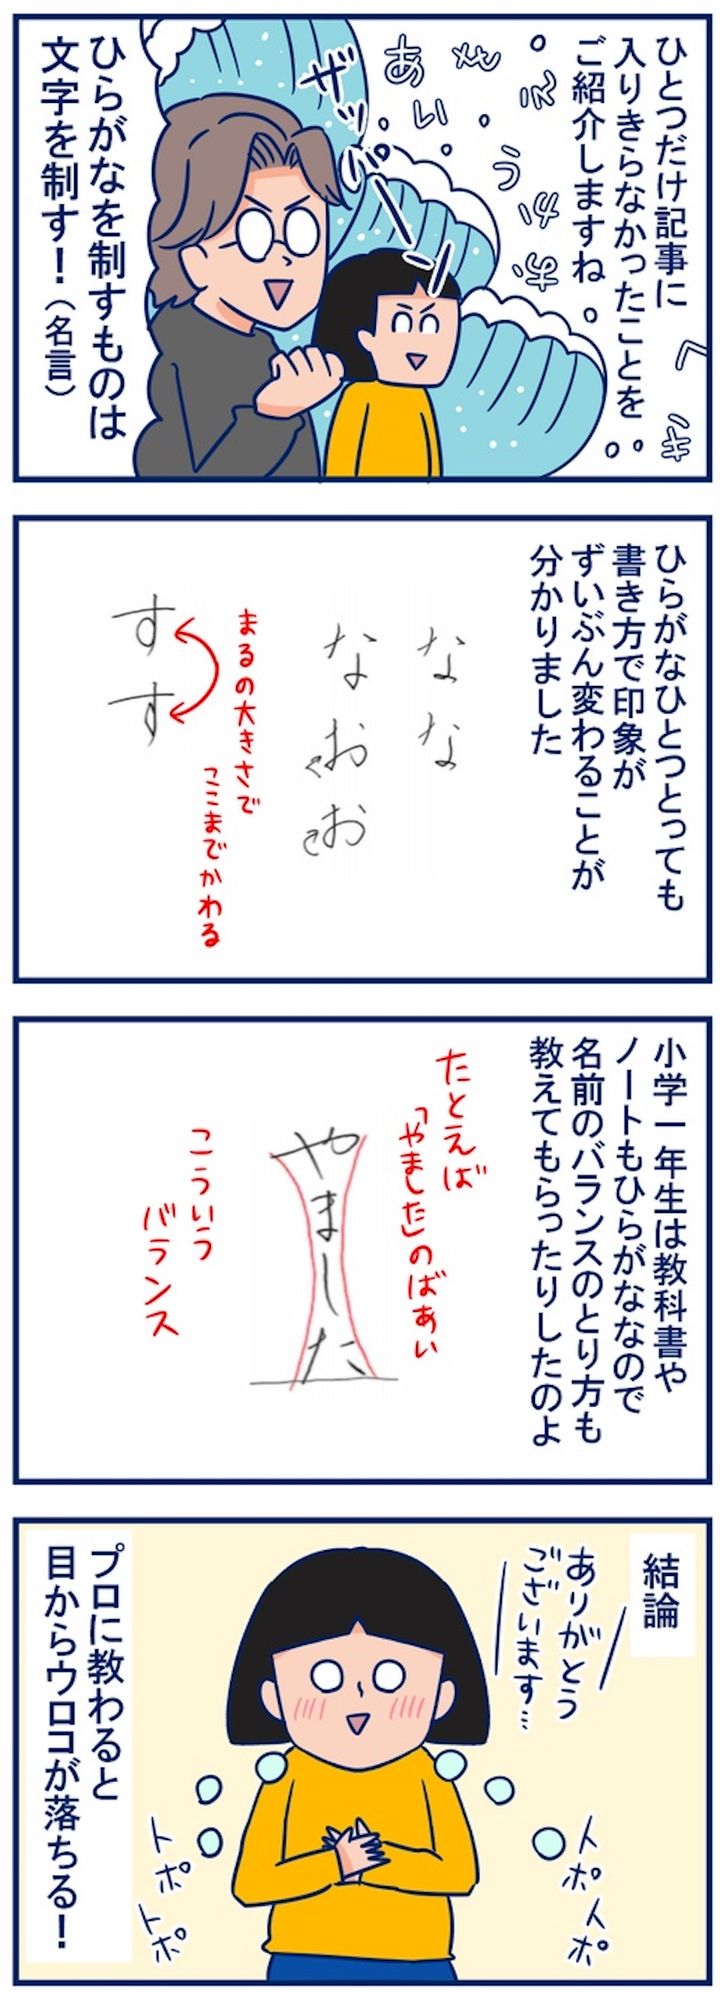 ひとつだけ記事に
入りきらなかったことを
ご紹介しますね
ザッパーン
あ
い
う
え
お
か
き
く
ひらがなを制すものは
文字を制す！（名言）
ひらがなひとつとっても
書き方で印象が
ずいぶん変わることが
分かりました
な
な
な
お
お
まるの大きさで
ここまでかわる
す
す
小学一年生は教科書や
ノートもひらがななので
名前のバランスのとり方も
教えてもらったりしたのよ
たとえば
「やました」のばあい
やました
こういう
バランス
結論
ありがとう
ございます…
トポ
トポ
トポ
トポ
プロに教わると
目からウロコが落ちる！